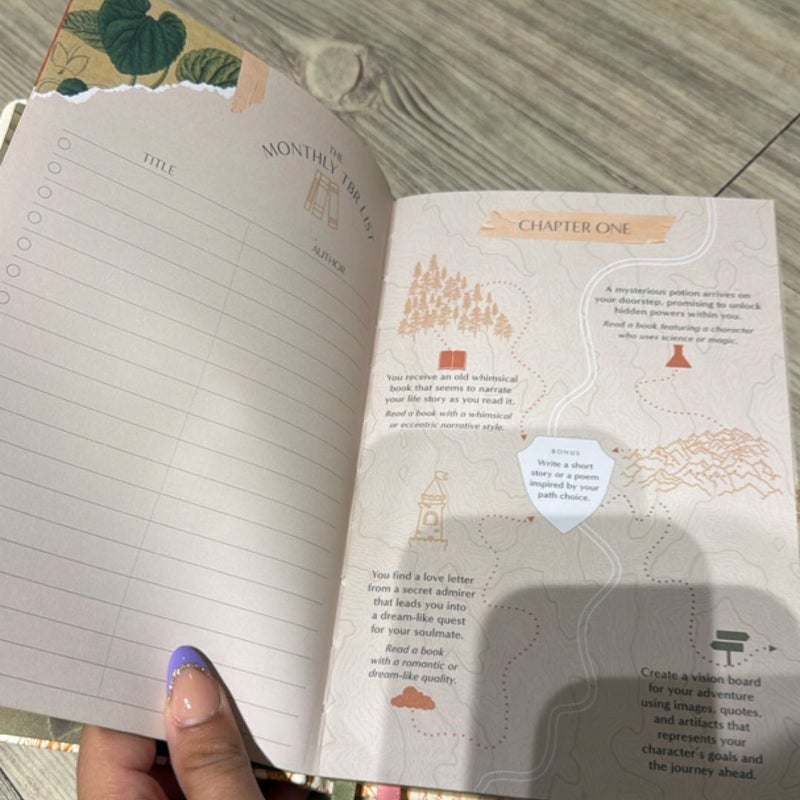 THE
MONTHLY TBR LIST
TITLE
AUTHOR
CHAPTER ONE
You receive an old whimsical
book that seems to narrate
your life story as you read it.
Read a book with a whimsical
or eccentric narrative style.
A mysterious potion arrives on
your doorstep, promising to unlock
hidden powers within you.
Read a book featuring a character
who uses science or magic.
BONUS
Write a short
story or a poem
inspired by your
path choice.
You find a love letter
from a secret admirer
that leads you into
a dream-like quest
for your soulmate.
Read a book
with a romantic or
dream-like quality.
Create a vision board
for your adventure
using images, quotes,
and artifacts that
represents your
character's goals and
the journey ahead.